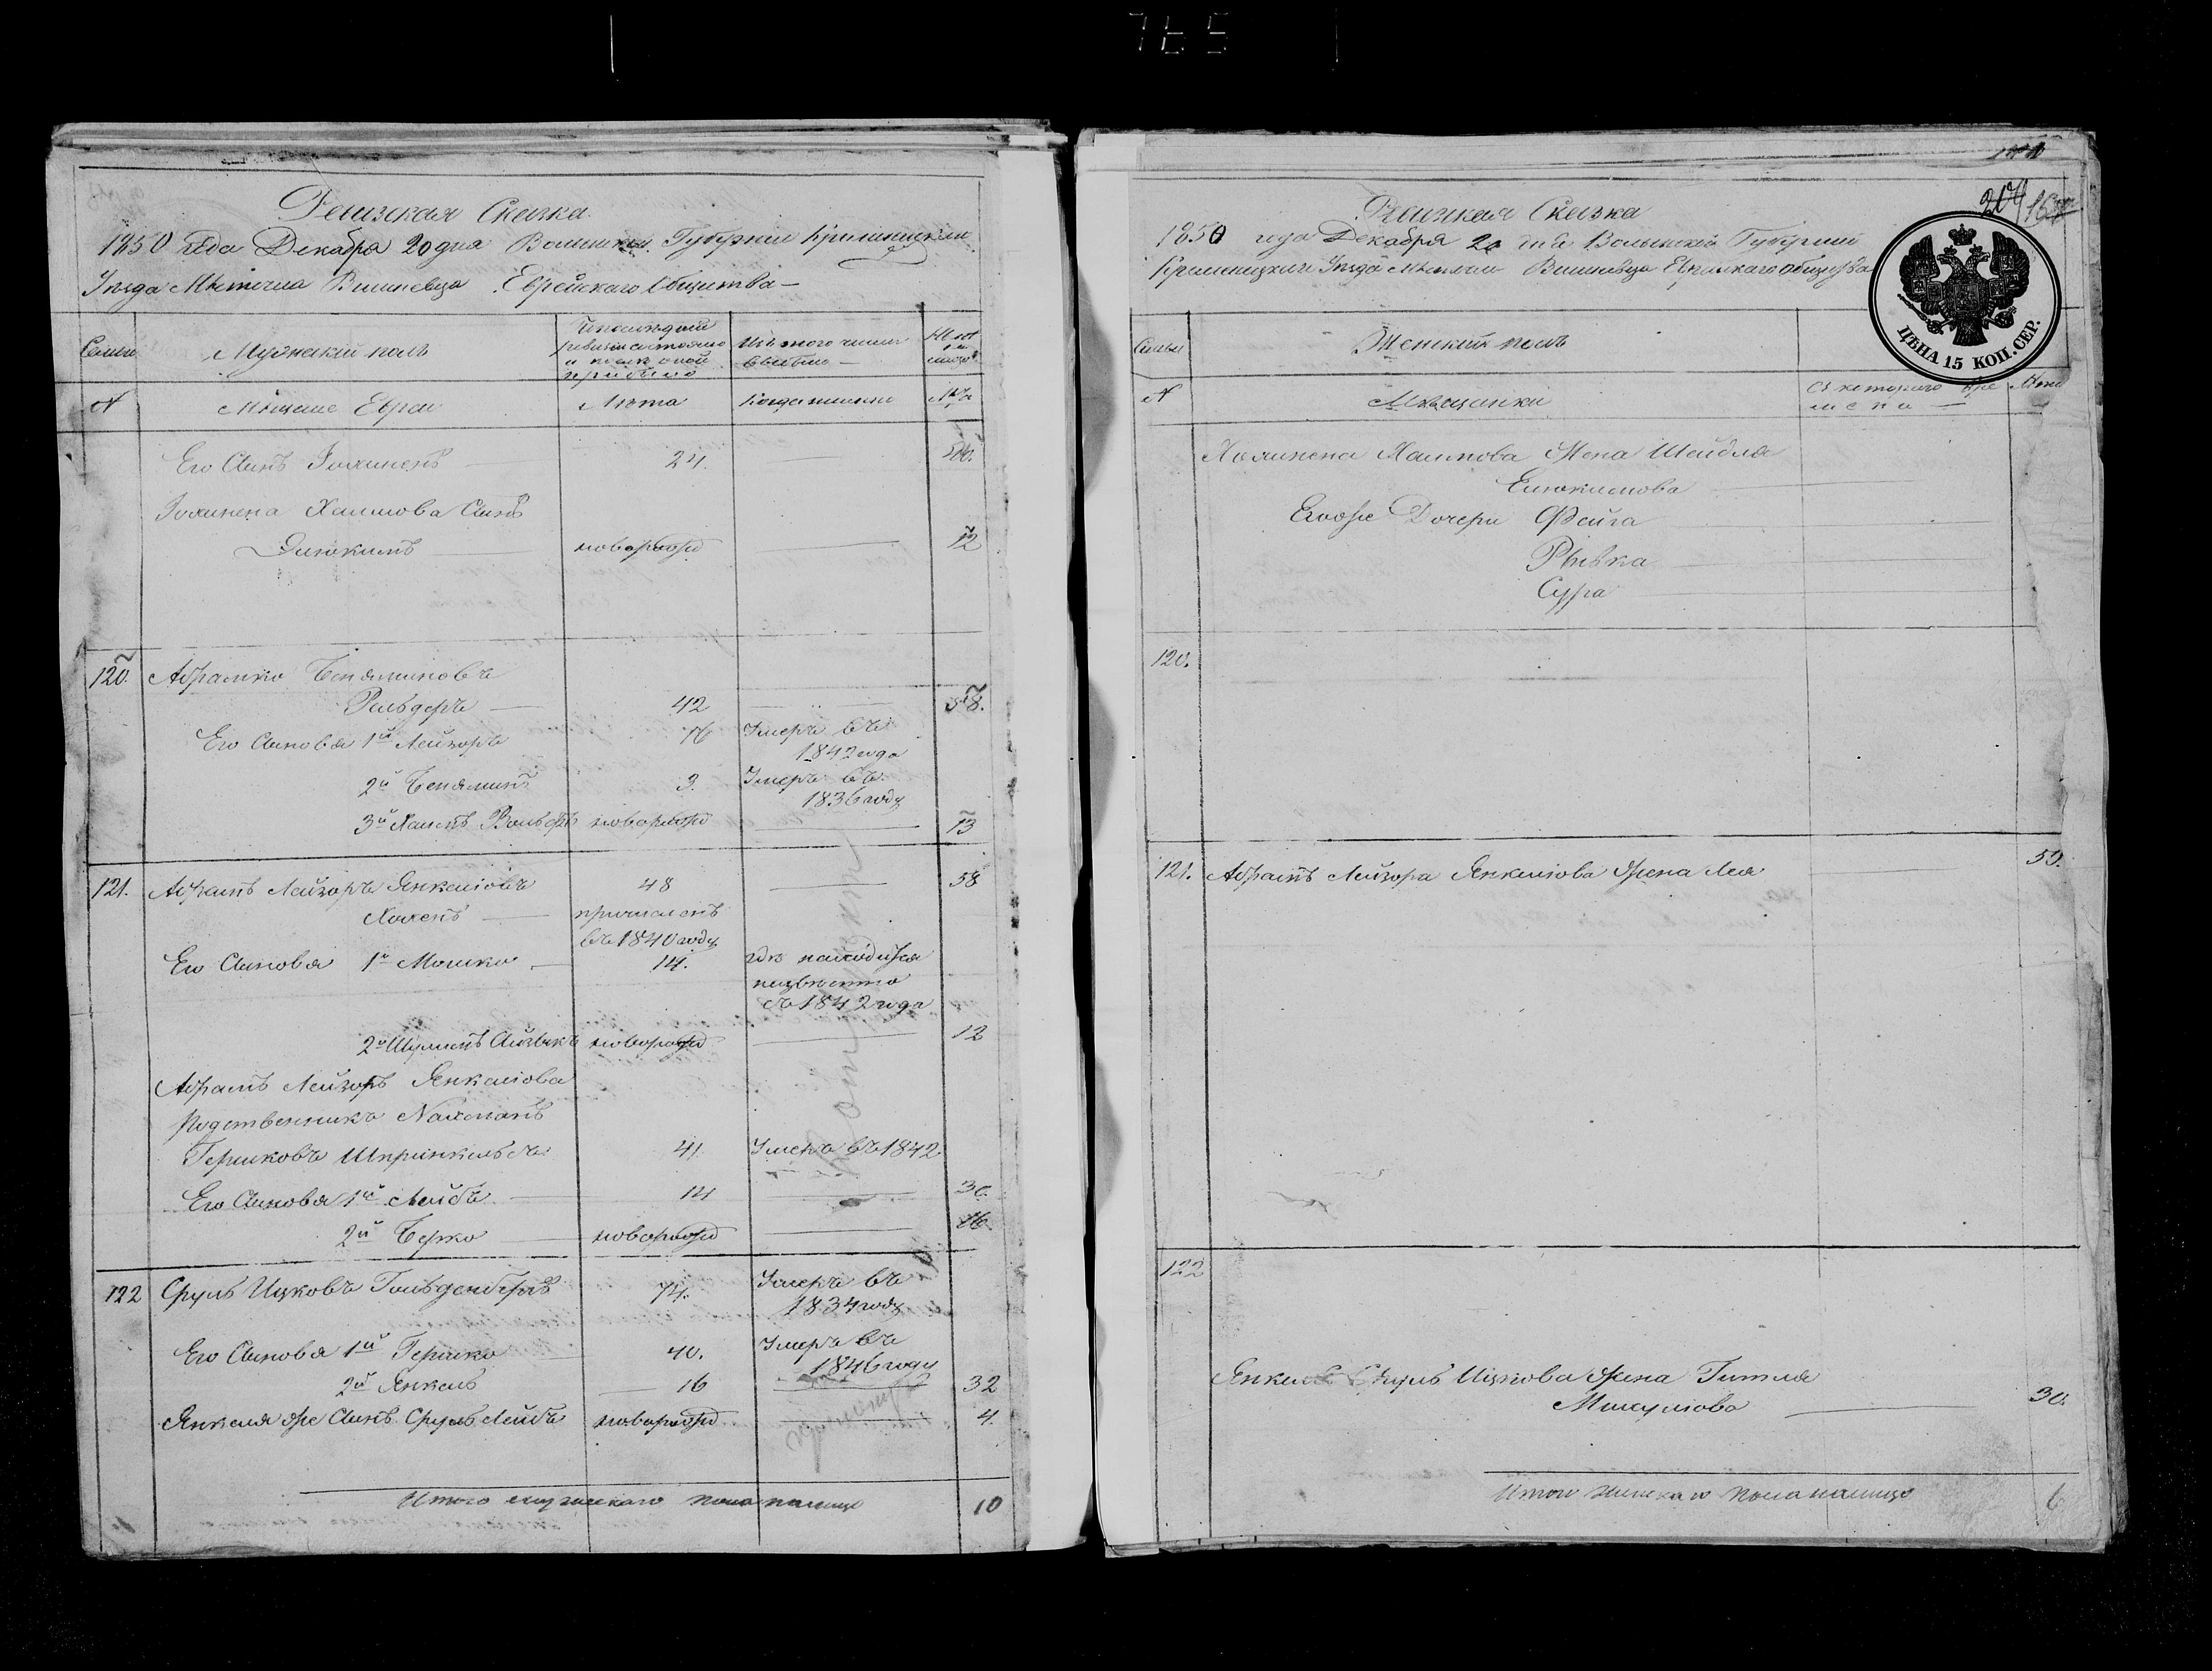 765
Ревизская Сказка
1850 года Декабря 20 дня Волынской Губернии Кременецкаго
Уезда Местечка Вишневца Еврейскаго Общества —
Семьи
Мужеский полъ
По последней
ревизии состояло
и после оной
прибыло
Изъ того числа
выбыло
Ныне
на
лицо
№
Мещане Евреи
Лета
Когда именно
Лета
Его Сынъ Иохиненъ
24.
Иохинена Хаимова Сынъ
Элюкимъ новорожд 12
120. Абрамко Беняминовъ
42 58.
Его Сыновья 1й Лейзоръ 16 Умеръ въ
1842 года
2й Беняминъ 3. Умеръ въ
1836 году
3й Хаимъ Вольфъ новорожд 13
121. Абрамъ Лейзоръ Янкелiовъ 48 58
причисленъ
въ 1840 году
Его Сыновья 1й Мошко 14. где находится
неизвестно
съ 1842 года
2й Шулимъ Айзыкъ новорожд 12
Абрамъ Лейзоръ Янкелiова
родственникъ Нахманъ
Гершковъ Шпринкельсъ 41 Умеръ въ 1842
Его Сыновья 1й Лейбъ 14 30.
2й Берко новорожд 16.
122 Сруль Ицковъ Гольденбергъ 74. Умеръ въ
1834 году
Его Сыновья 1й Гершко 40. Умеръ въ
1846 году
2й Янкель 16 32
Янкеля же Сынъ Сруль Лейбъ новорожд 4.
Итого мужескаго пола налицо 10
204
Ревизкая Сказка
1850 года Декабря 20 дня Волынской Губернии
Кременецкаго Уезда Местечка Вишневца Еврейскаго общества
ЦѢНА 15 КОП. СЕР.
Семьи
Женский полъ
№
Мещанки
Съ котораго вре
мени
Лета
Иохинена Хаимова Жена Шейдля
Елюкимова
Егоже Дочери Фейга
Рывка
Сура
120.
121. Абрамъ Лейзора Янкелiова жена Лея 50.
122
Янкеля Сруль Ицкова жена Гитля
30.
Итого женскаго пола налицо 6